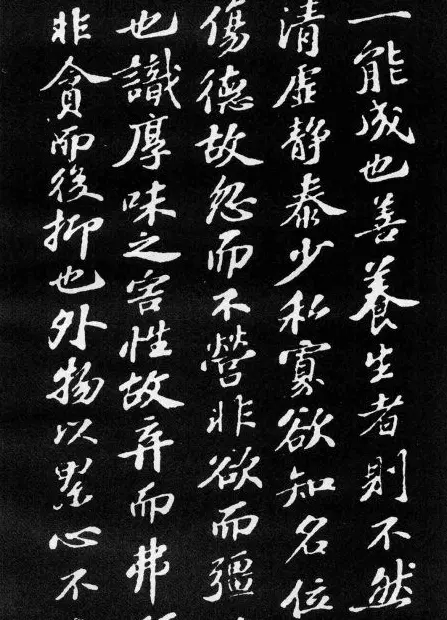 一能成也善養生者則不然
清虚静泰少私寡欲知名位
傷德故忽而不營非欲而彊
也識厚味之害性故弃而弗
非貪而後抑也外物以累心不